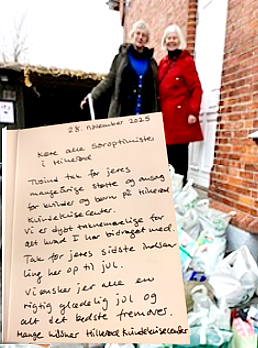 28. november 2025
Kære alle Soroptimister
i Hillerød
Tusind tak for jeres
mangeårige støtte og omsorg
for kvinder og børn på Hillerød
Kvindekrisecenter.
Vi er dybt taknemmelige for
alt hvad I har bidraget med.
Tak for jeres sidste indsam
ling her op til jul.
Vi ønsker jer alle en
rigtig glædelig jul og
alt det bedste fremover.
Mange hilsner Hillerød Kvindekrisecenter